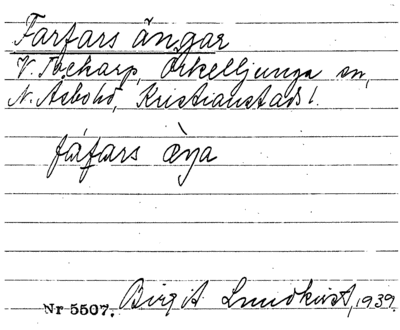 Farfars ängar
V. Toskarp, Örkelljunga sn,
N. Åsbohd, Kristianstads l.
fárfars æ̀ŋa
Nr 5507. Birgit Lundkvist, 1939.